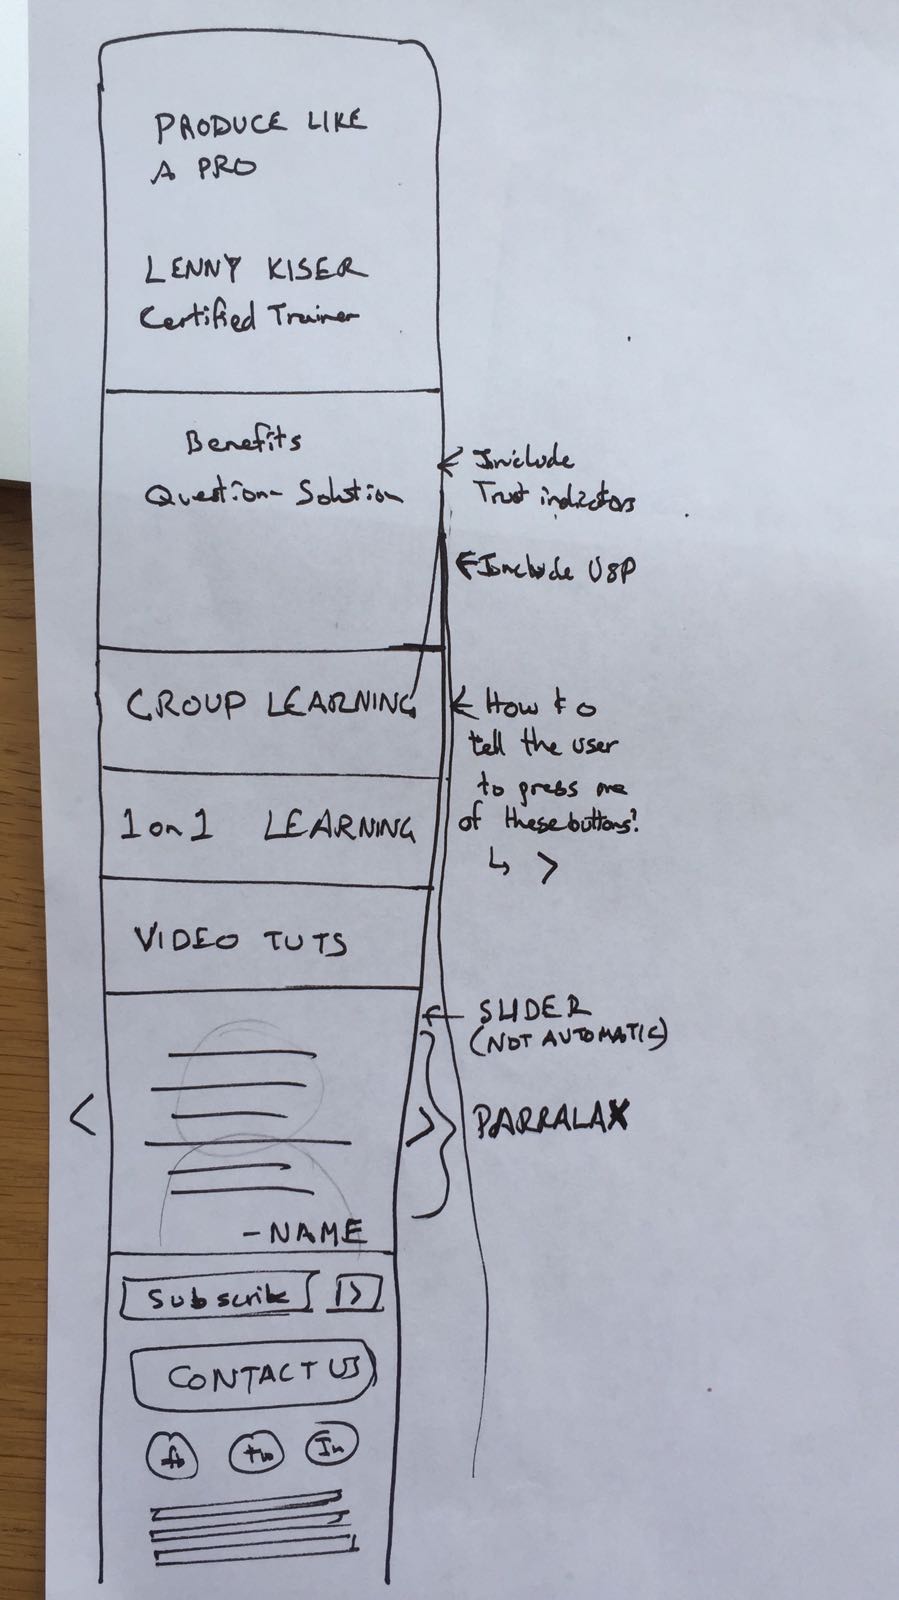 PRODUCE LIKE
A PRO
LENNY KISER
Certified Trainer
Benefits
Question- Solution
Include
Trust indicators
Include USP
GROUP LEARNING
How to
tell the user
to press one
of these buttons?
>
1 on 1 LEARNING
VIDEO TUTS
SLIDER
(NOT AUTOMATIC)
< >
PARRALAX
-NAME
Subscribe >
CONTACT US
fb tw In